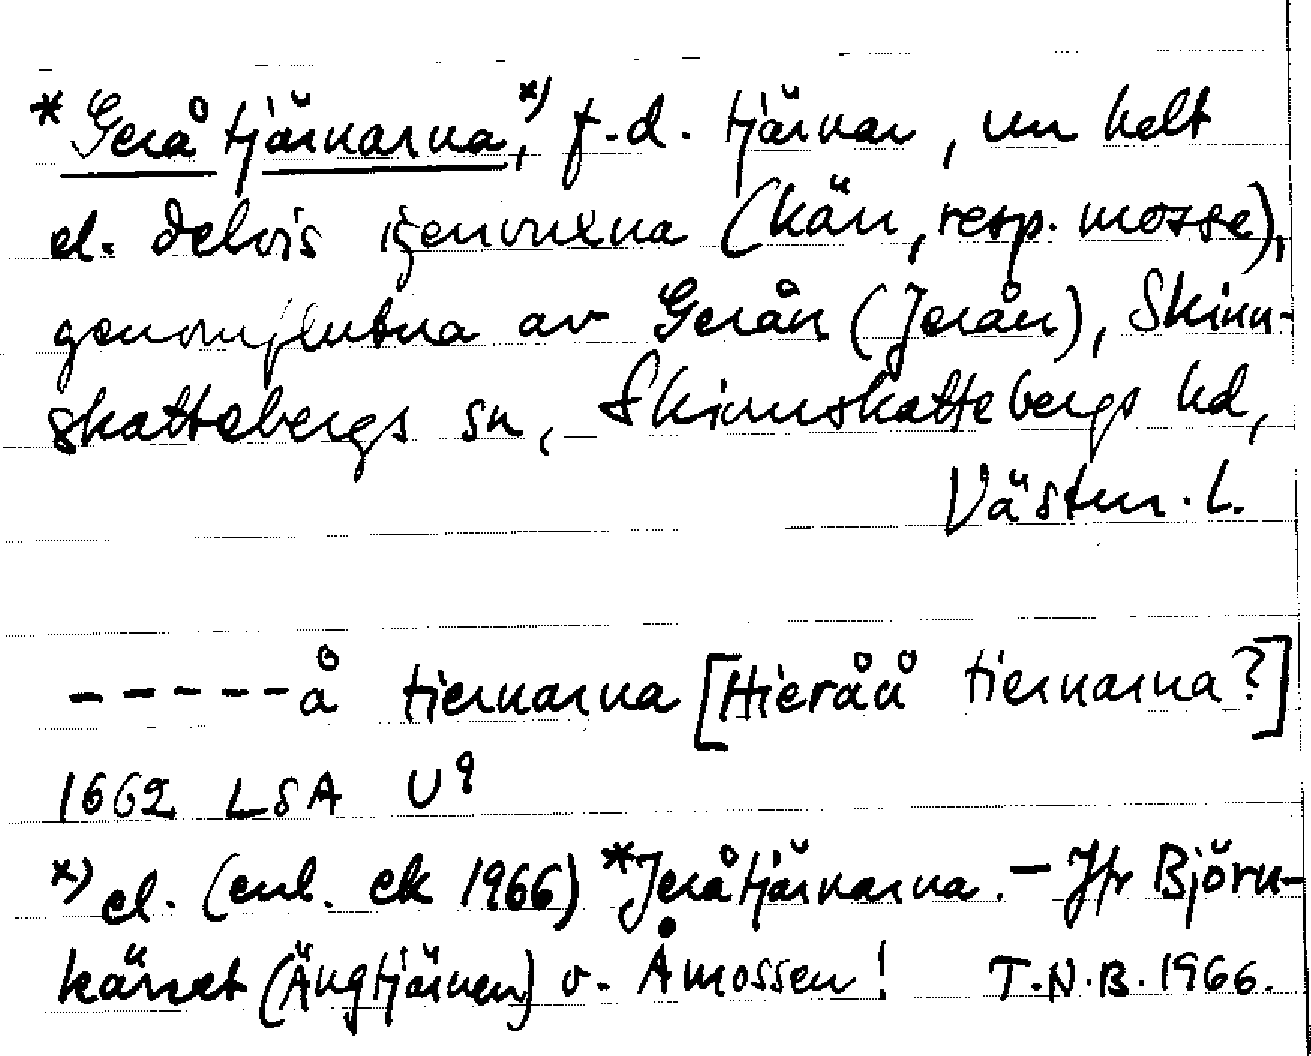 *Gerå tjärnarna,*) f.d. tjärnar, nu helt
el. delvis igenvuxna (kärr, resp. mosse),
genomflutna av Gerån (Jerån), Skinn-
skattebergs sn, Skinnskattebergs hd,
Västm. l.
-----å tiernarna [Hieråå tiernarna?]
1662 LSA U9
*) el. (enl. ek 1966) *Jeråtjärnarna. - Jfr Björn-
kärret (Ängtjärnen) o. Åmossen! T.N.B. 1966.